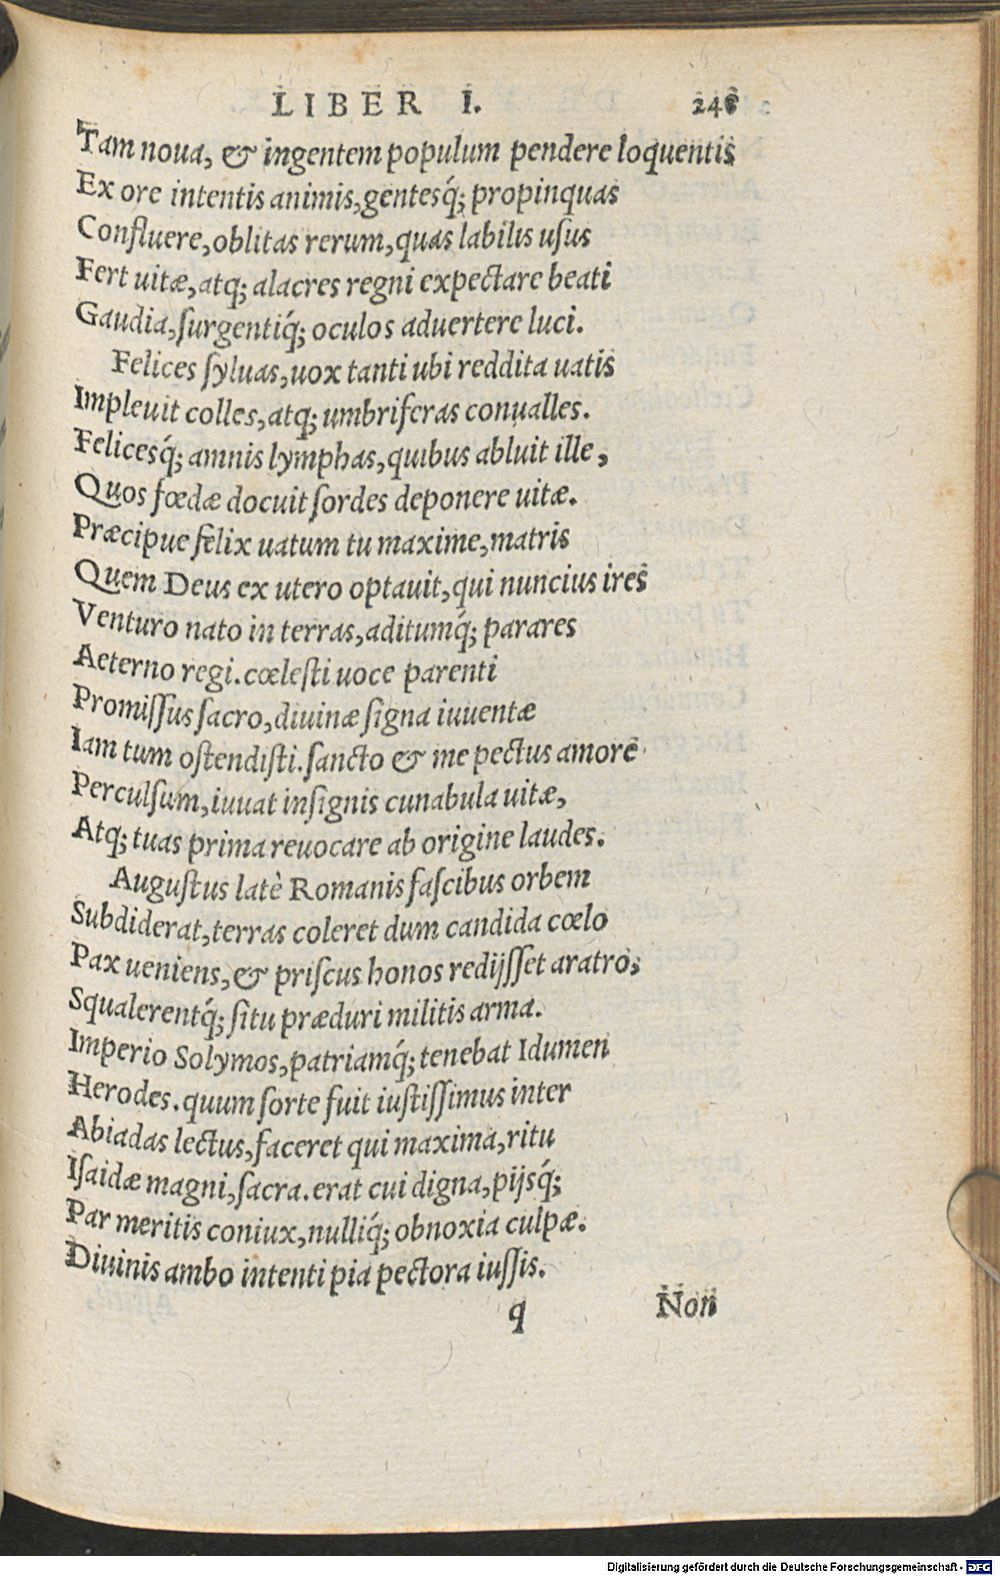 LIBER I.
Tam noua, & ingentem populum pendere loquentis
Ex ore intentis animis, gentesq́; propinquas
Confluere, oblitas rerum, quas labilis uſus
Fert uitæ, atq; alacres regni expectare beati
Gaudia, ſurgentiq́; oculos aduertere luci.
Felices ſyluas, uox tanti ubi reddita uatis
Impleuit colles, atq; umbriferas conualles.
Felicesq́; amnis lymphas, quibus abluit ille,
Quos fœdæ docuit ſordes deponere uitæ.
Præcipue felix uatum tu maxime, matris
Quem Deus ex utero optauit, qui nuncius ires
Venturo nato in terras, aditumq́; parares
Aeterno regi. cœleſti uoce parenti
Promiſſus ſacro, diuinæ ſigna iuuentæ
Iam tum oſtendiſti. ſancto & me pectus amore
Perculſum, iuuat inſignis cunabula uitæ,
Atq; tuas prima reuocare ab origine laudes.
Auguſtus latè Romanis faſcibus orbem
Subdiderat, terras coleret dum candida cœlo
Pax ueniens, & priſcus honos redijſſet aratro,
Squalerentq́; ſitu præduri militis arma.
Imperio Solymos, patriamq́; tenebat Idumen
Herodes. quum ſorte fuit iuſtiſſimus inter
Abiadas lectus, faceret qui maxima, ritu
Iſaidæ magni, ſacra. erat cui digna, pijsq́;
Par meritis coniux, nulliq́; obnoxia culpæ.
Diuinis ambo intenti pia pectora iuſſis.
q Non
Digitalisierung gefördert durch die Deutsche Forschungsgemeinschaft - DFG